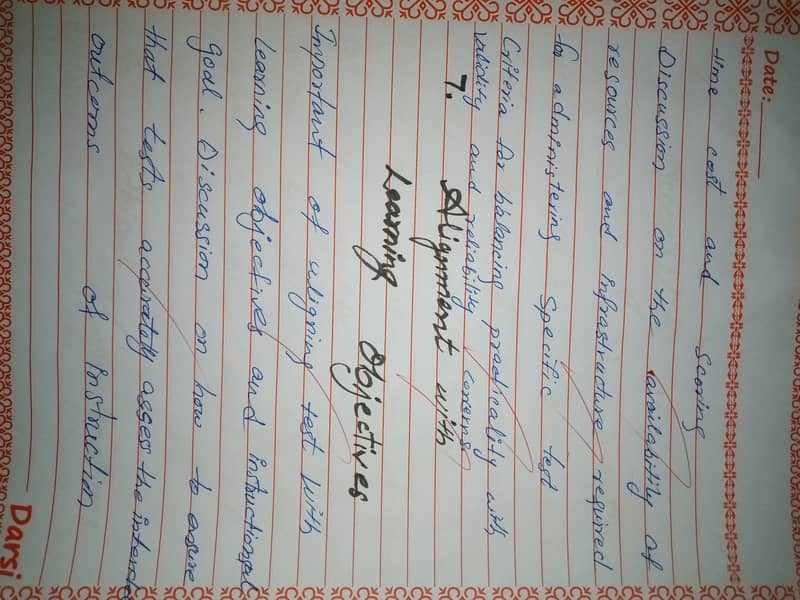 Date:
time cost and scoring
Discussion on the availability of
resources and infrastructure required
for administering specific test
Criteria for balancing practicality with
validity and reliability
7. Alignment with
Learning Objectives
Important of aligning test with
learning objectives and instructional
goal. Discussion on how to
that tests accurately asses the
outcoms of instruction
Darsi